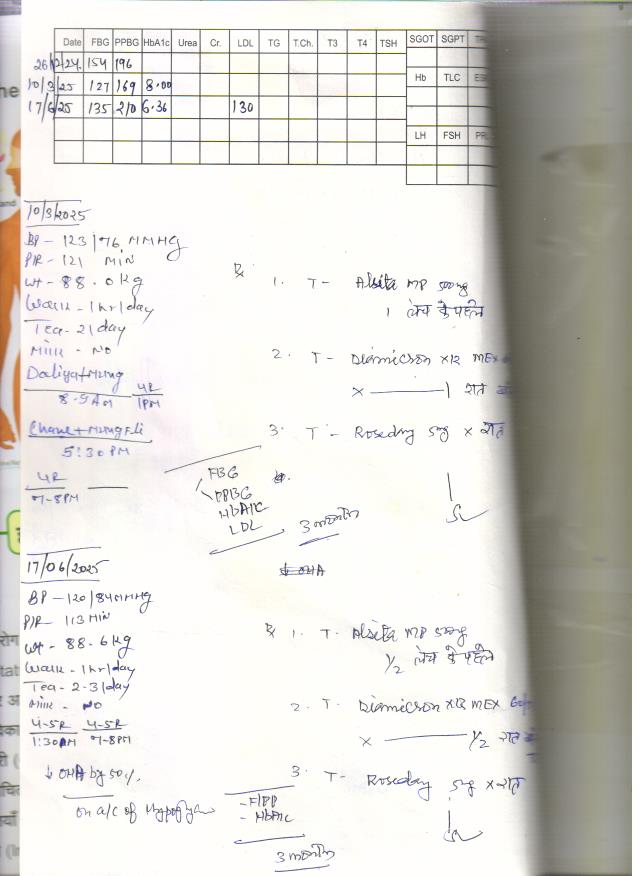 Date FBG PPBG HbA1c Urea Cr. LDL TG T.Ch. T3 T4 TSH SGOT SGPT
26/12/24. 154 196
Hb TLC ESR
10/3/25 127 169 8.00
17/6/25 135 210 6.36 130
LH FSH PRL
10/3/2025
BP - 123/76 MMHG
P/R - 121 MIN
Wt - 88.0 kg
Walk - 1hr/day
Tea - 2/day
Milk - NO
Daliya+Mung
8-9AM
4R
1PM
Chane+Mungfli
5:30PM
4R
7-8PM
Rx 1. T- Alsita MP 500mg
1 लंच के पहले
2. T- Diamicron XR MEX
x ——— 1 रात
3. T- Roseday 5mg x रात
FBG
PPBG
HbA1C
LDL
3 month
↓ OHA
17/06/2025
BP - 120/84MMHg
P/R - 113 MIN
Wt - 88.6kg
Walk - 1hr/day
Tea - 2-3/day
Milk - NO
4-5R 4-5R
1:30AM 7-8PM
↓ OHA by 50%
on a/c of Hypoglycemia
Rx 1. T. Alsita MP 500mg
1/2 लंच के पहले
2. T. Diamicron XR MEX 60/
x ——— 1/2 रात
3. T- Roseday 5mg x रात
- F/PP
- HbA1C
3 month